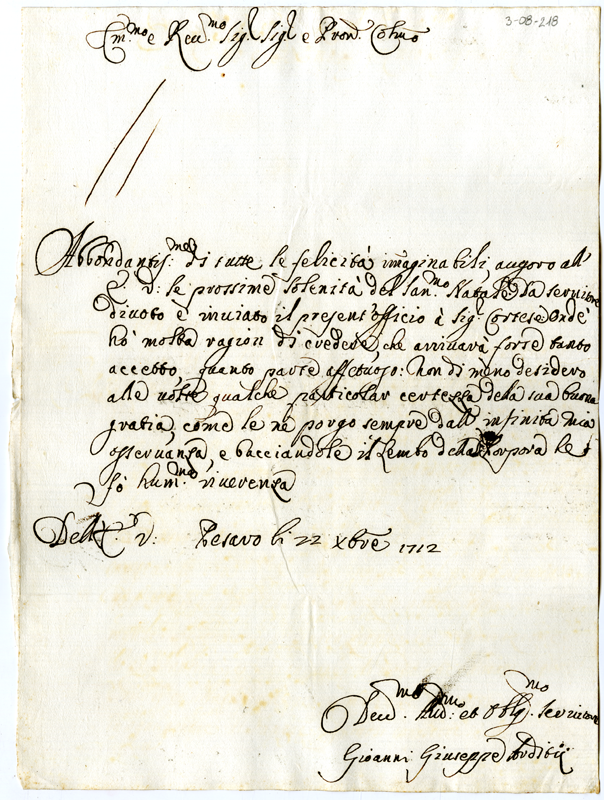 3-08-218
Em.mo e Reu.mo Sig. Sig. e Pron. Col.mo
Abbondantis.me di tutte le felicità imaginabili, auguro all'
E. V: le prossime solenità del San.mo Natale. Da servitore
diuoto è inuiato il present'officio à Sig. Cortese, Onde
hò molta ragion di credere, che arriuarà forse tanto
accetto, quanto parte affettuoso: non di meno desidero
alle uolte qualche particolar certezza della sua buona
gratia, come le ne porgo sempre dall' infinita mia
osseruanza, e bacciandole il Lembo della Porpora le
fò hum.ma riuerenza
Dell' E. V: Pesaro li 22 Xbre 1712
Deu.mo et Obl.mo seruitore
Gioanni Giuseppe